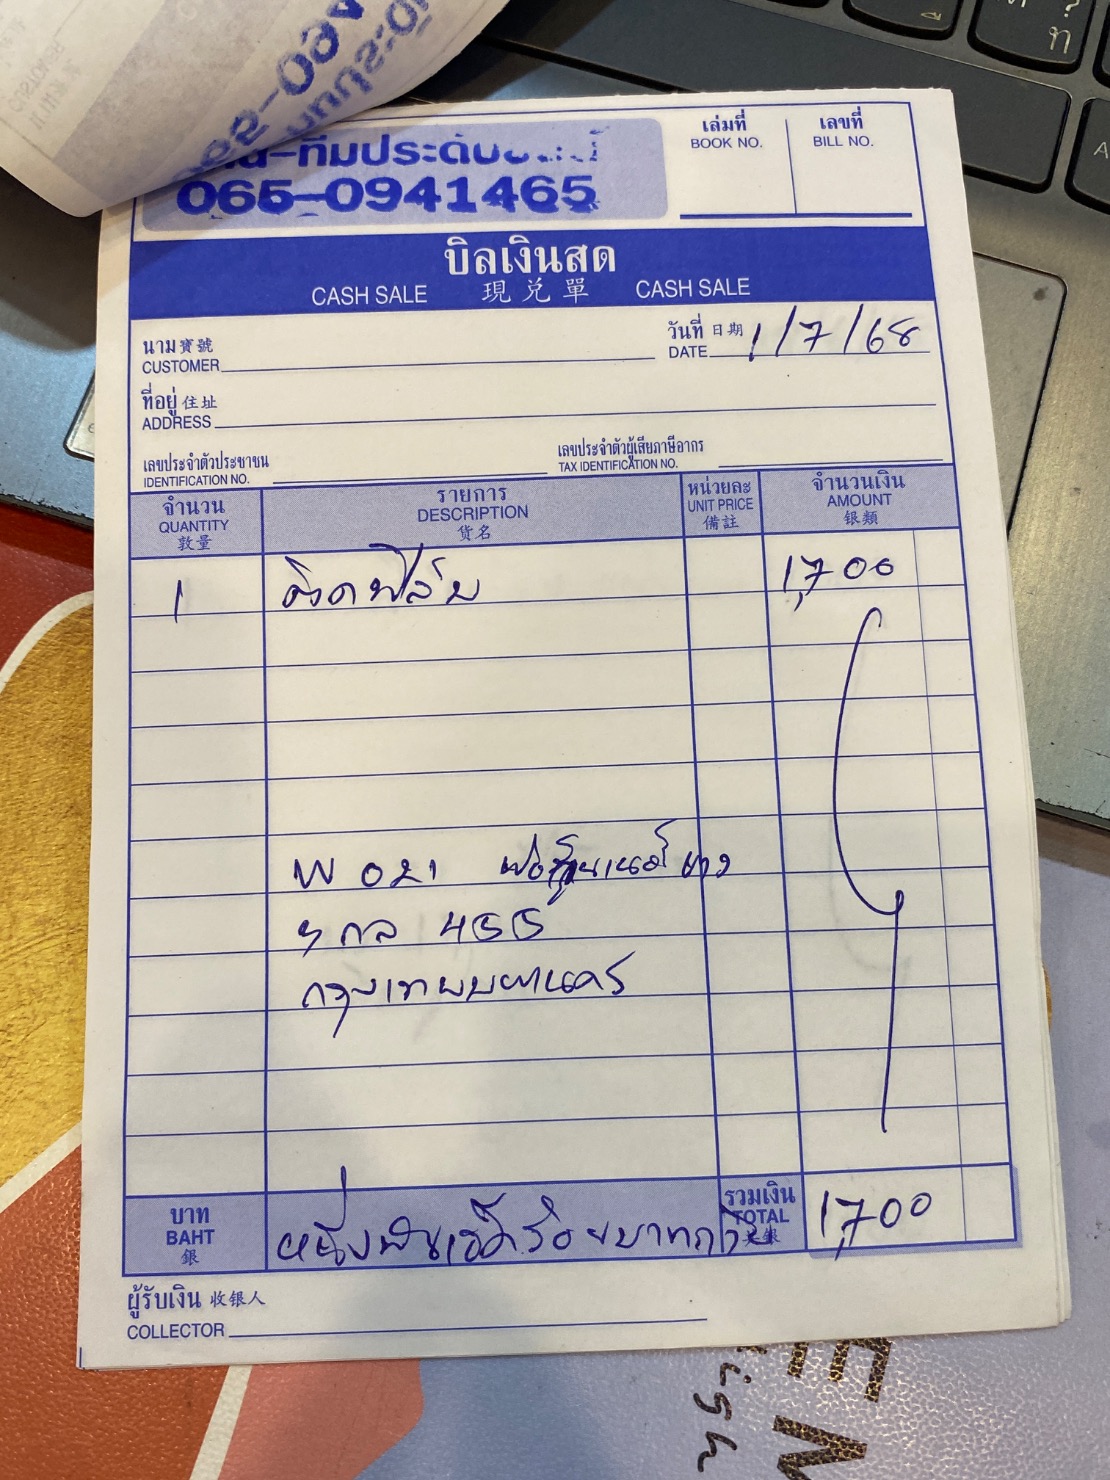 ทีมประดับยนต์
065-0941465
เล่มที่ เลขที่
BOOK NO. BILL NO.
บิลเงินสด
CASH SALE 現兌單 CASH SALE
นาม寶號 วันที่ 日期 1/7/68
CUSTOMER DATE
ที่อยู่ 住址
ADDRESS
เลขประจำตัวประชาชน เลขประจำตัวผู้เสียภาษีอากร
IDENTIFICATION NO. TAX IDENTIFICATION NO.
จำนวน รายการ หน่วยละ จำนวนเงิน
QUANTITY DESCRIPTION UNIT PRICE AMOUNT
數量 货名 備註 银類
1 ติดฟิล์ม 1,700
W 021 ฟอร์จูนเนอร์ ขาว
กล 455
กรุงเทพมหานคร
บาท หนึ่งพันเจ็ดร้อยบาทถ้วน รวมเงิน 1,700
BAHT TOTAL
銀
ผู้รับเงิน 收银人
COLLECTOR
EN